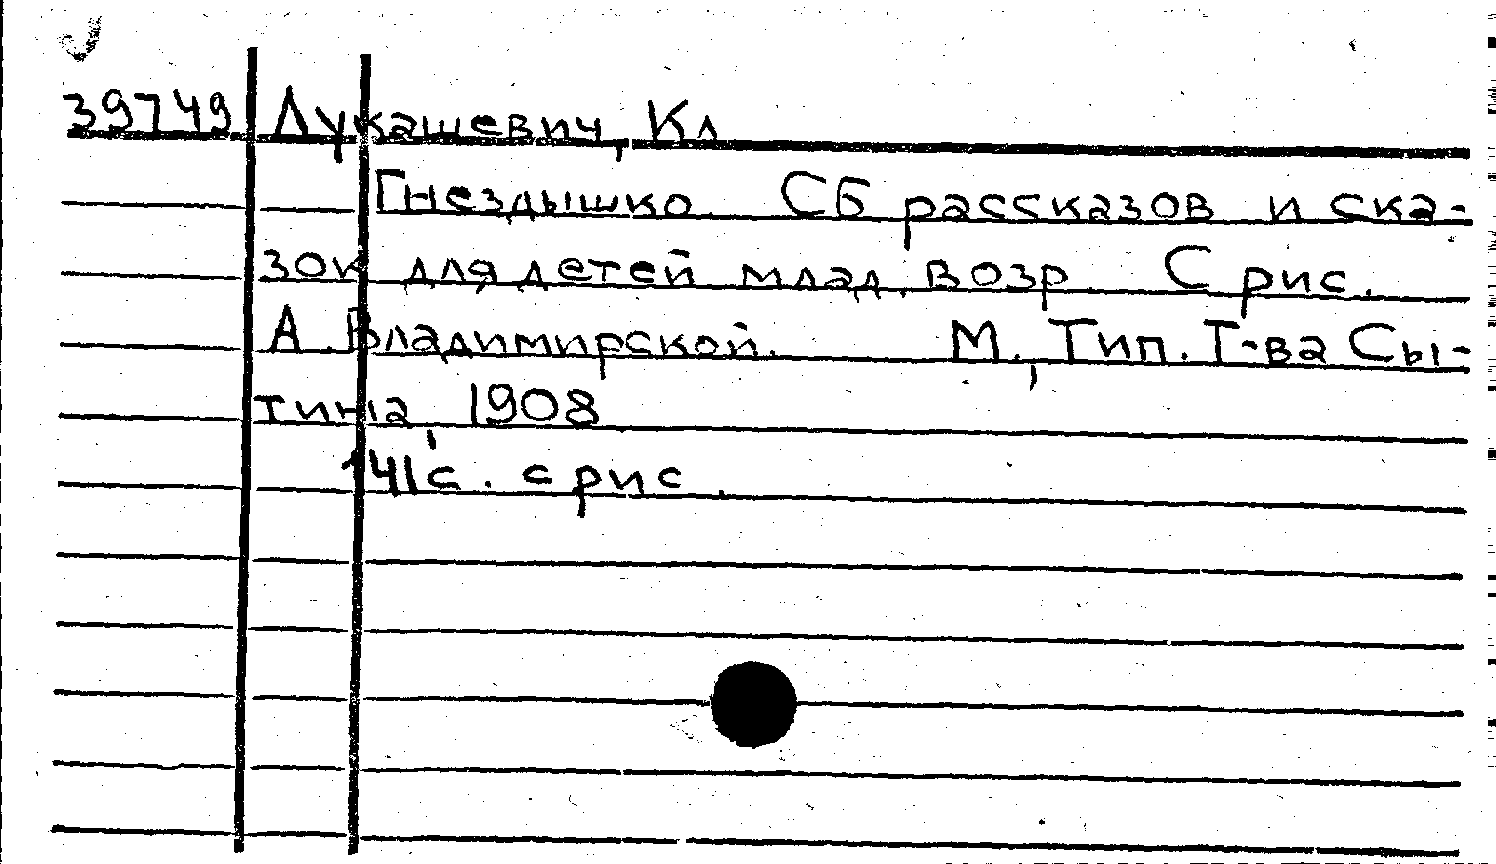 39749 Лукашевич, Кл
Гнездышко. Сб рассказов и ска-
зок для детей млад. возр. С рис.
А. Владимирской. М., Тип. Т-ва Сы-
тина, 1908
141с. с рис.